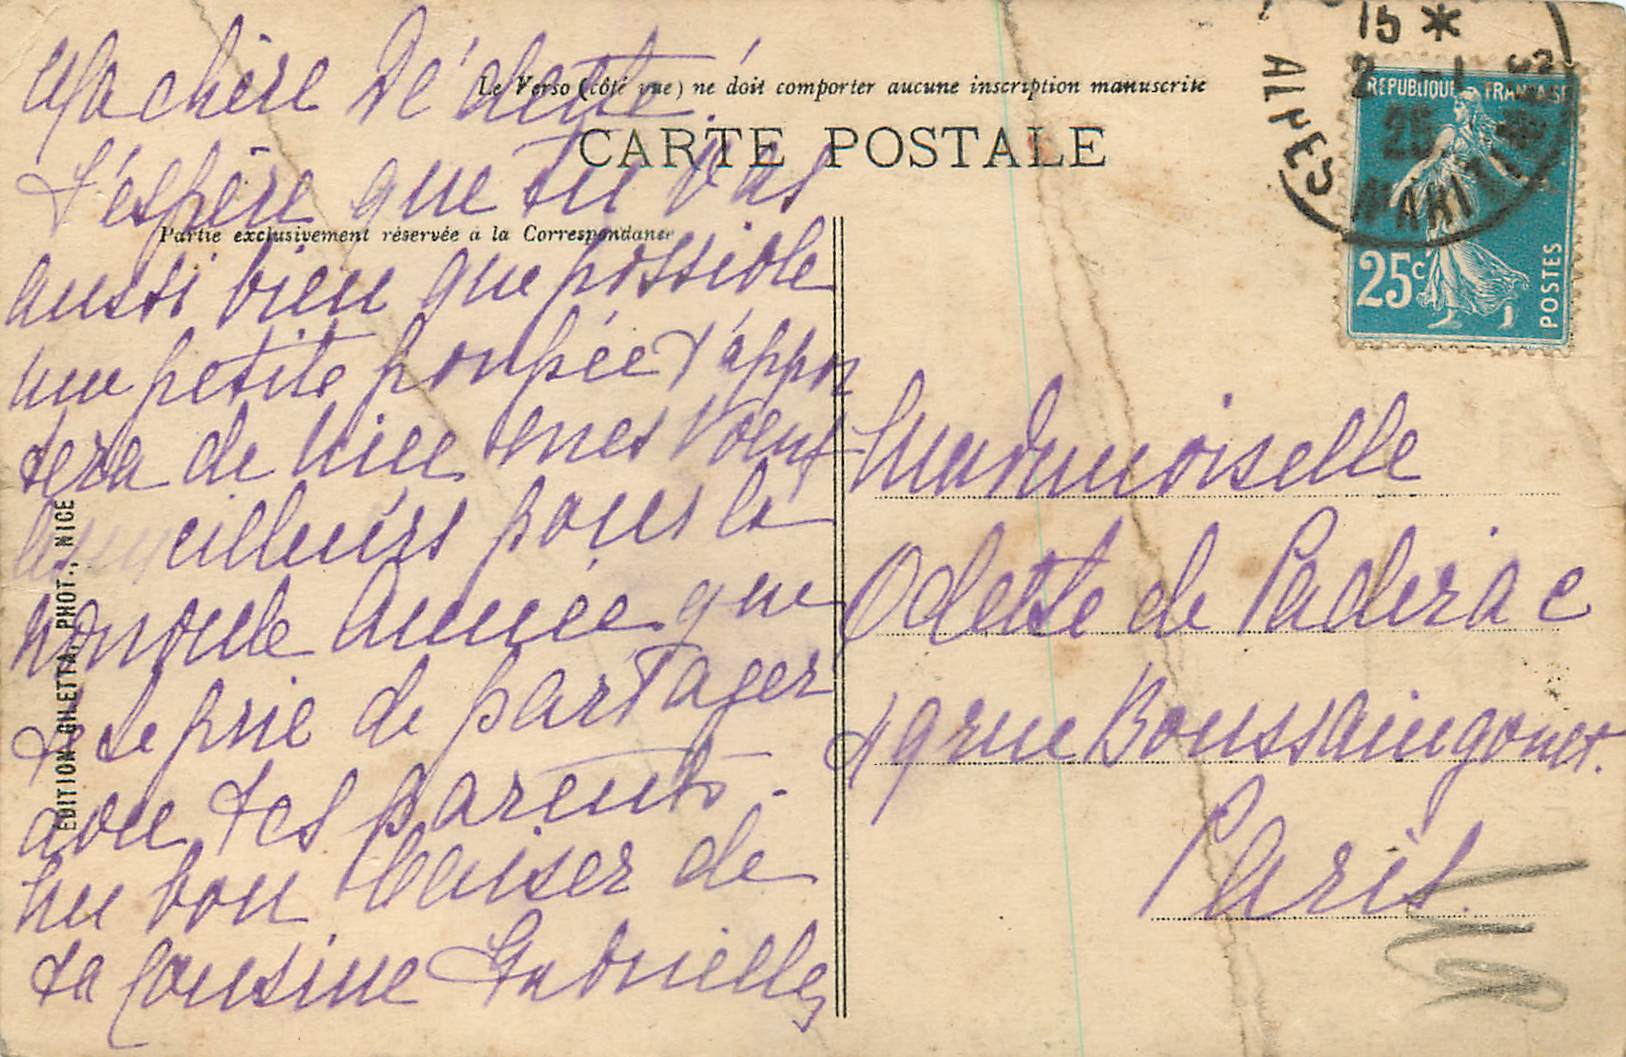 Le Verso (côté vue) ne doit comporter aucune inscription manuscrite
CARTE POSTALE
Partie exclusivement réservée à la Correspondance
Ma chère Dédette.
J'espère que tu vas
aussi bien que possible
une petite poupée t'appor
tera de Nice mes vœux
les meilleurs pour la
nouvelle Année que
je te prie de partager
avec tes parents.
Un bon baiser de
ta cousine Gabrielle
EDITION GILETTA, PHOT., NICE
15 *
2 -1
25
ALPES MARITIMES
REPUBLIQUE FRANÇAISE
25c
POSTES
Mademoiselle
Odette de Padirac
49 rue Boussaingonet.
Paris.